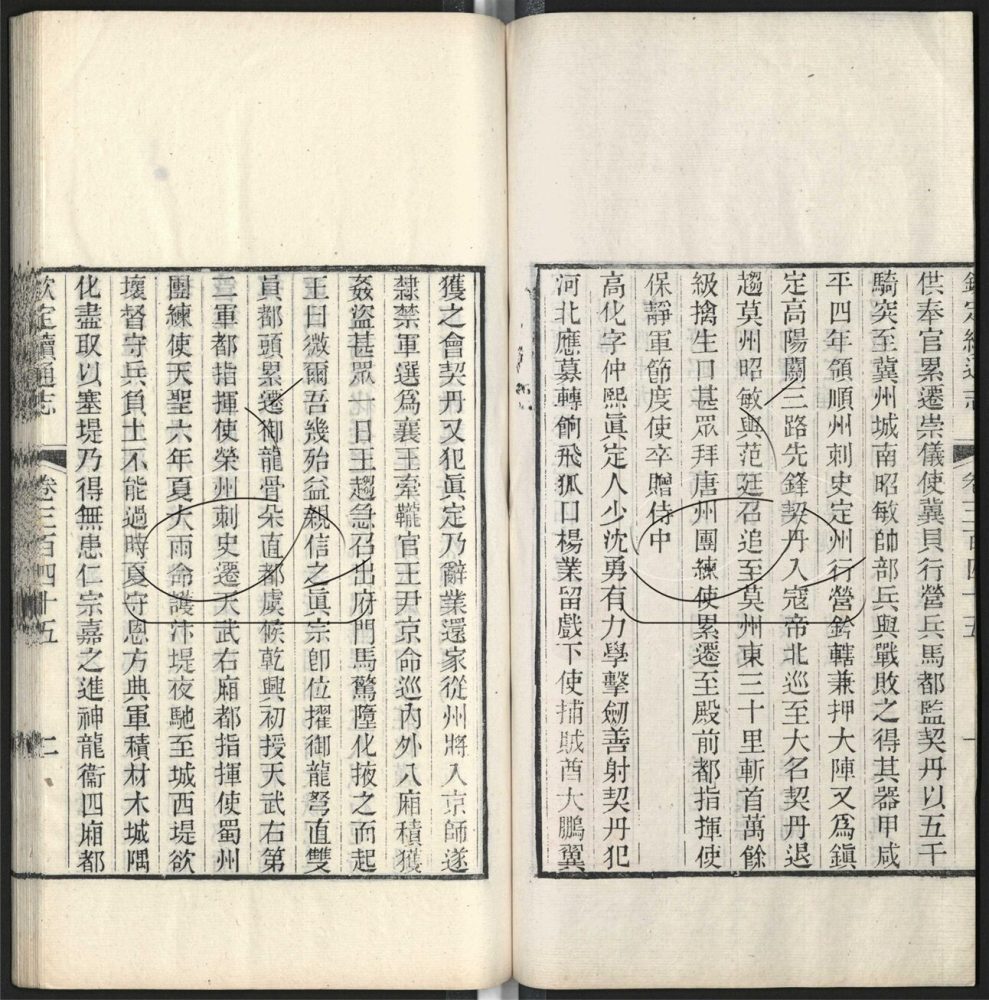 欽定續通志 卷三百四十五 一
供奉官累遷崇儀使冀貝行營兵馬都監契丹以五千
騎突至冀州城南昭敏帥部兵與戰敗之得其器甲咸
平四年領順州刺史定州行營鈐轄兼押大陣又爲鎭
定高陽關三路先鋒契丹入寇帝北巡至大名契丹退
趨莫州昭敏與范廷召追至莫州東三十里斬首萬餘
級擒生口甚眾拜唐州團練使累遷至殿前都指揮使
保靜軍節度使卒贈侍中
高化字仲熙眞定人少沈勇有力學擊劒善射契丹犯
河北應募轉餉飛狐口楊業留戲下使捕賊酋大鵬翼
獲之會契丹又犯眞定乃辭業還家從州將入京師遂
隸禁軍選爲襄王牽櫳官王尹京命巡內外八廂積獲
姦盜甚眾一日王趨急召出府門馬驚墮化掖之而起
王曰微爾吾幾殆益親信之眞宗卽位擢御龍弩直雙
員都頭累遷御龍骨朵直都虞候乾興初授天武右第
三軍都指揮使榮州刺史遷天武右廂都指揮使蜀州
團練使天聖六年夏大雨命護汴堤夜馳至城西堤欲
壞督守兵負土不能過時夏守恩方典軍積材木城隅
化盡取以塞堤乃得無患仁宗嘉之進神龍衞四廂都
欽定續通志 卷三百四十五 二